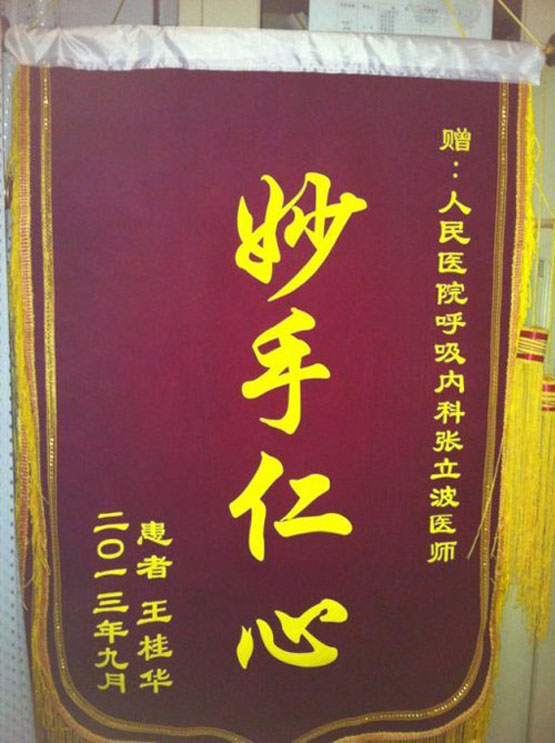 赠：人民医院呼吸内科张立波医师
妙手仁心
患者 王桂华
二〇一三年九月